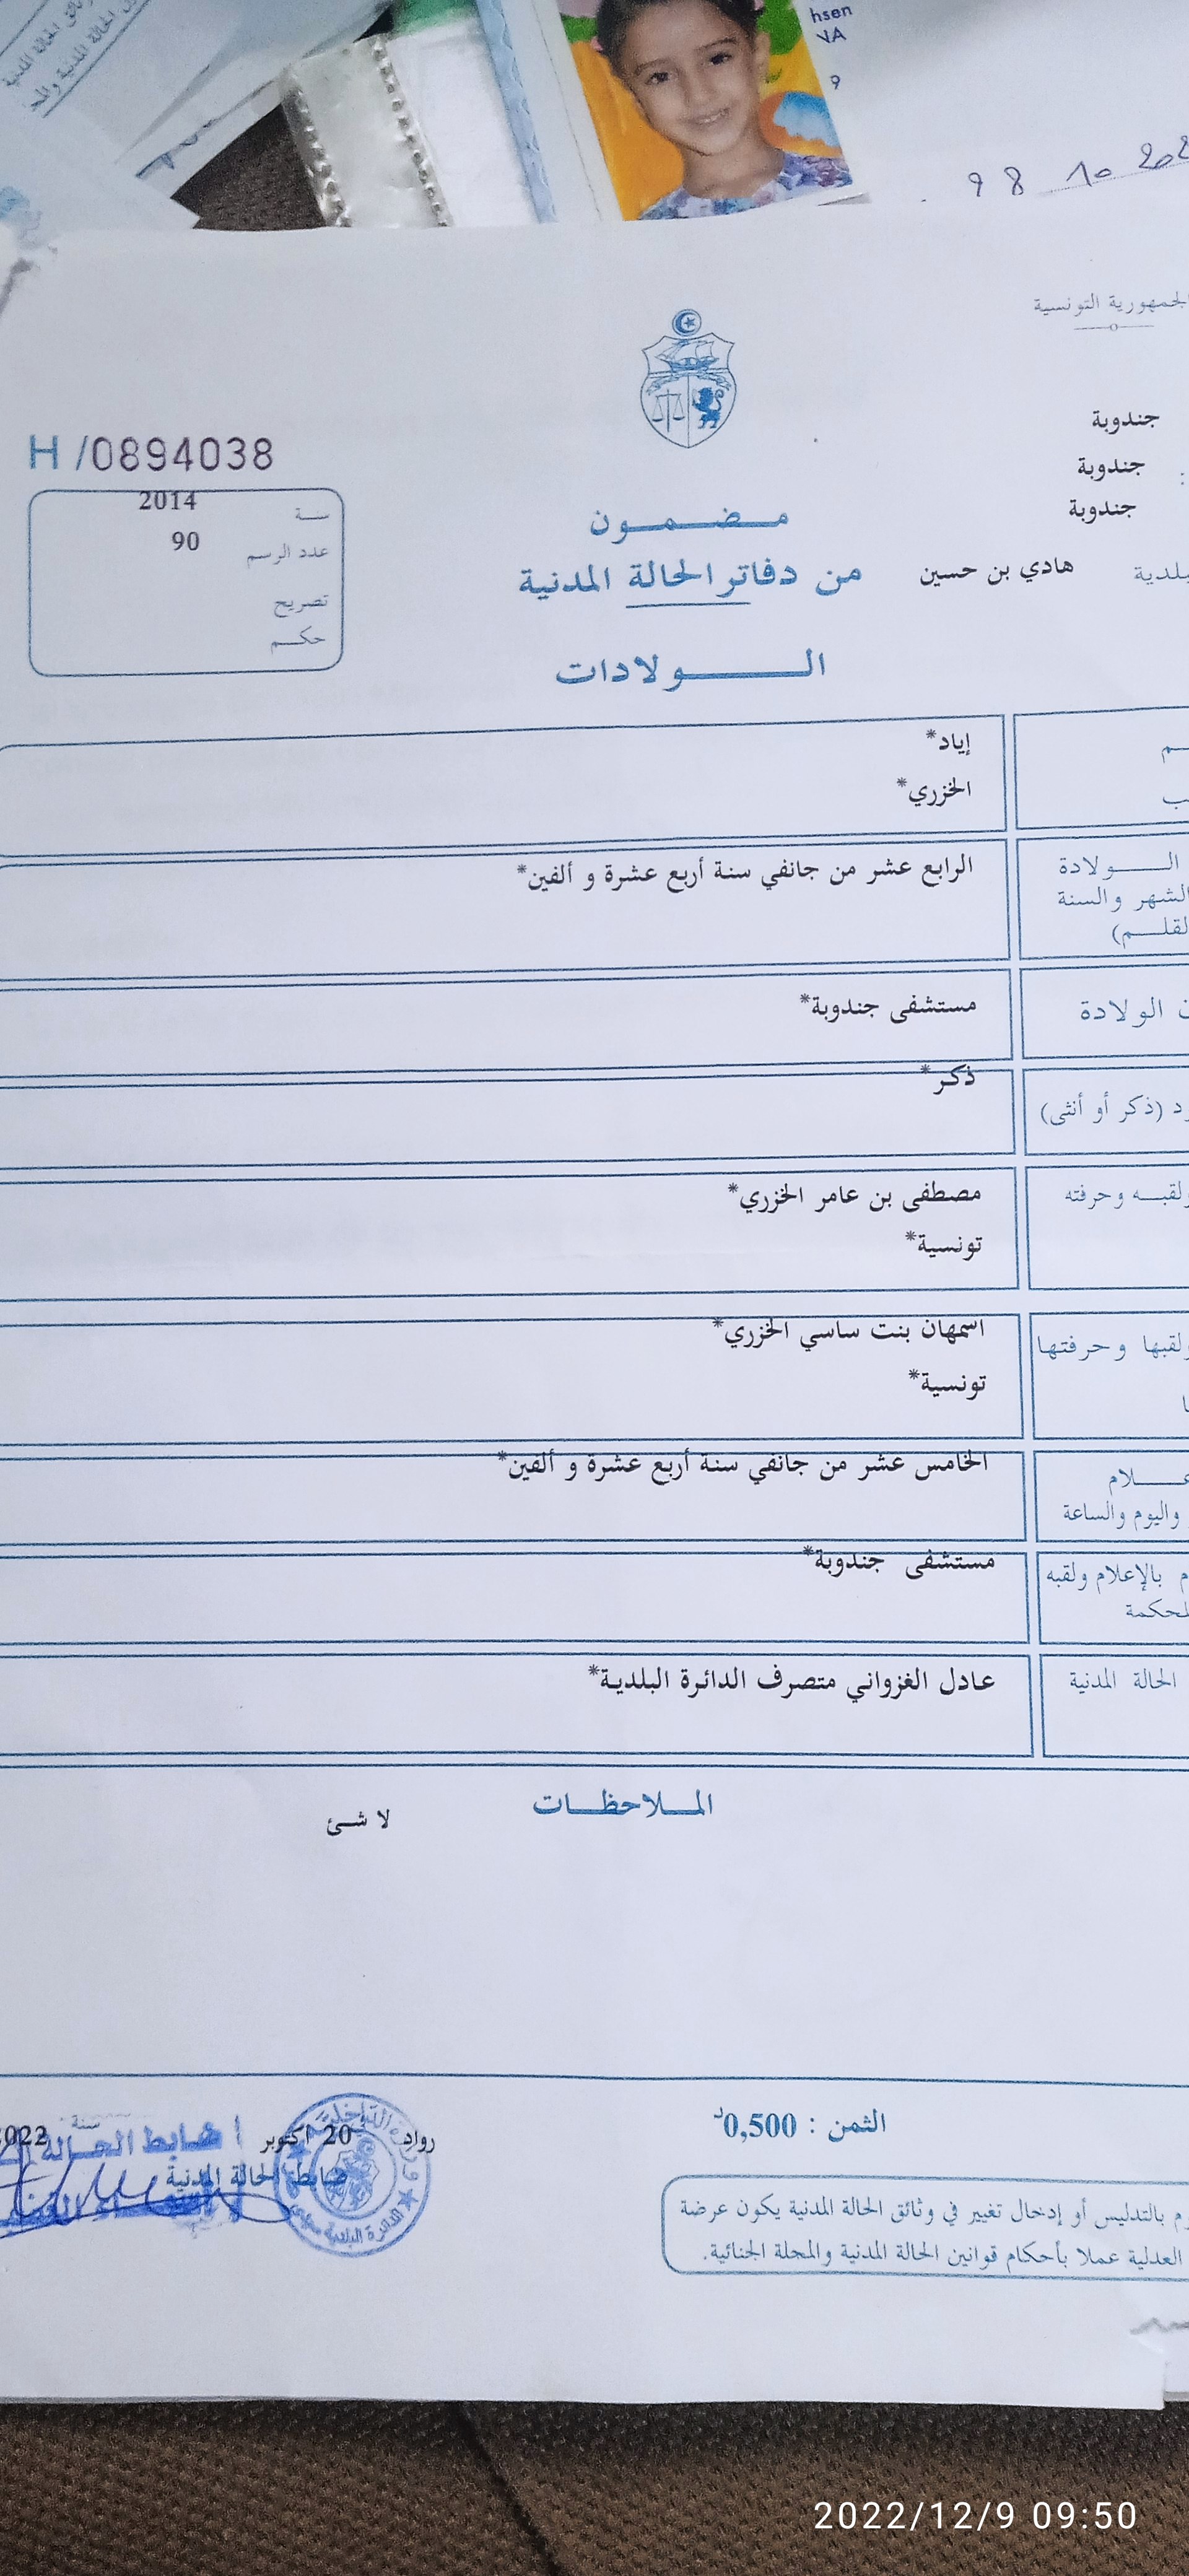 وثائق الحالة المدنية
الحالة المدنية والمجـ
hsen
VA
9
98 10 202
الجمهورية التونسية
جندوبة
جندوبة
:
جندوبة
بلدية هادي بن حسين
H /0894038
سنة 2014
عدد الرسم 90
تصريح
حكم
مضمون
من دفاتر الحالة المدنية
الولادات
ـم إياد*
ـب الخزري*
الولادة الرابع عشر من جانفي سنة أربع عشرة و ألفين*
الشهر والسنة
لقلم)
ن الولادة مستشفى جندوبة*
ذكر*
ود (ذكر أو أنثى)
ولقبه وحرفته مصطفى بن عامر الخزري*
تونسية*
اسمهان بنت ساسي الخزري*
ولقبها وحرفتها
تونسية*
ا
الخامس عشر من جانفي سنة أربع عشرة و ألفين*
ـعلام
واليوم والساعة
مستشفى جندوبة*
م بالإعلام ولقبه
لمحكمة
الحالة المدنية عادل الغزواني متصرف الدائرة البلدية*
الملاحظات
لا شئ
الثمن : 0,500د
رواد في 20 أكتوبر سنة 2022
ضابط الحالة المدنية
ضابط الحالة
وزارة الداخلية
الدائرة البلدية
م بالتدليس أو إدخال تغيير في وثائق الحالة المدنية يكون عرضة
العدلية عملا بأحكام قوانين الحالة المدنية والمجلة الجنائية.
2022/12/9 09:50